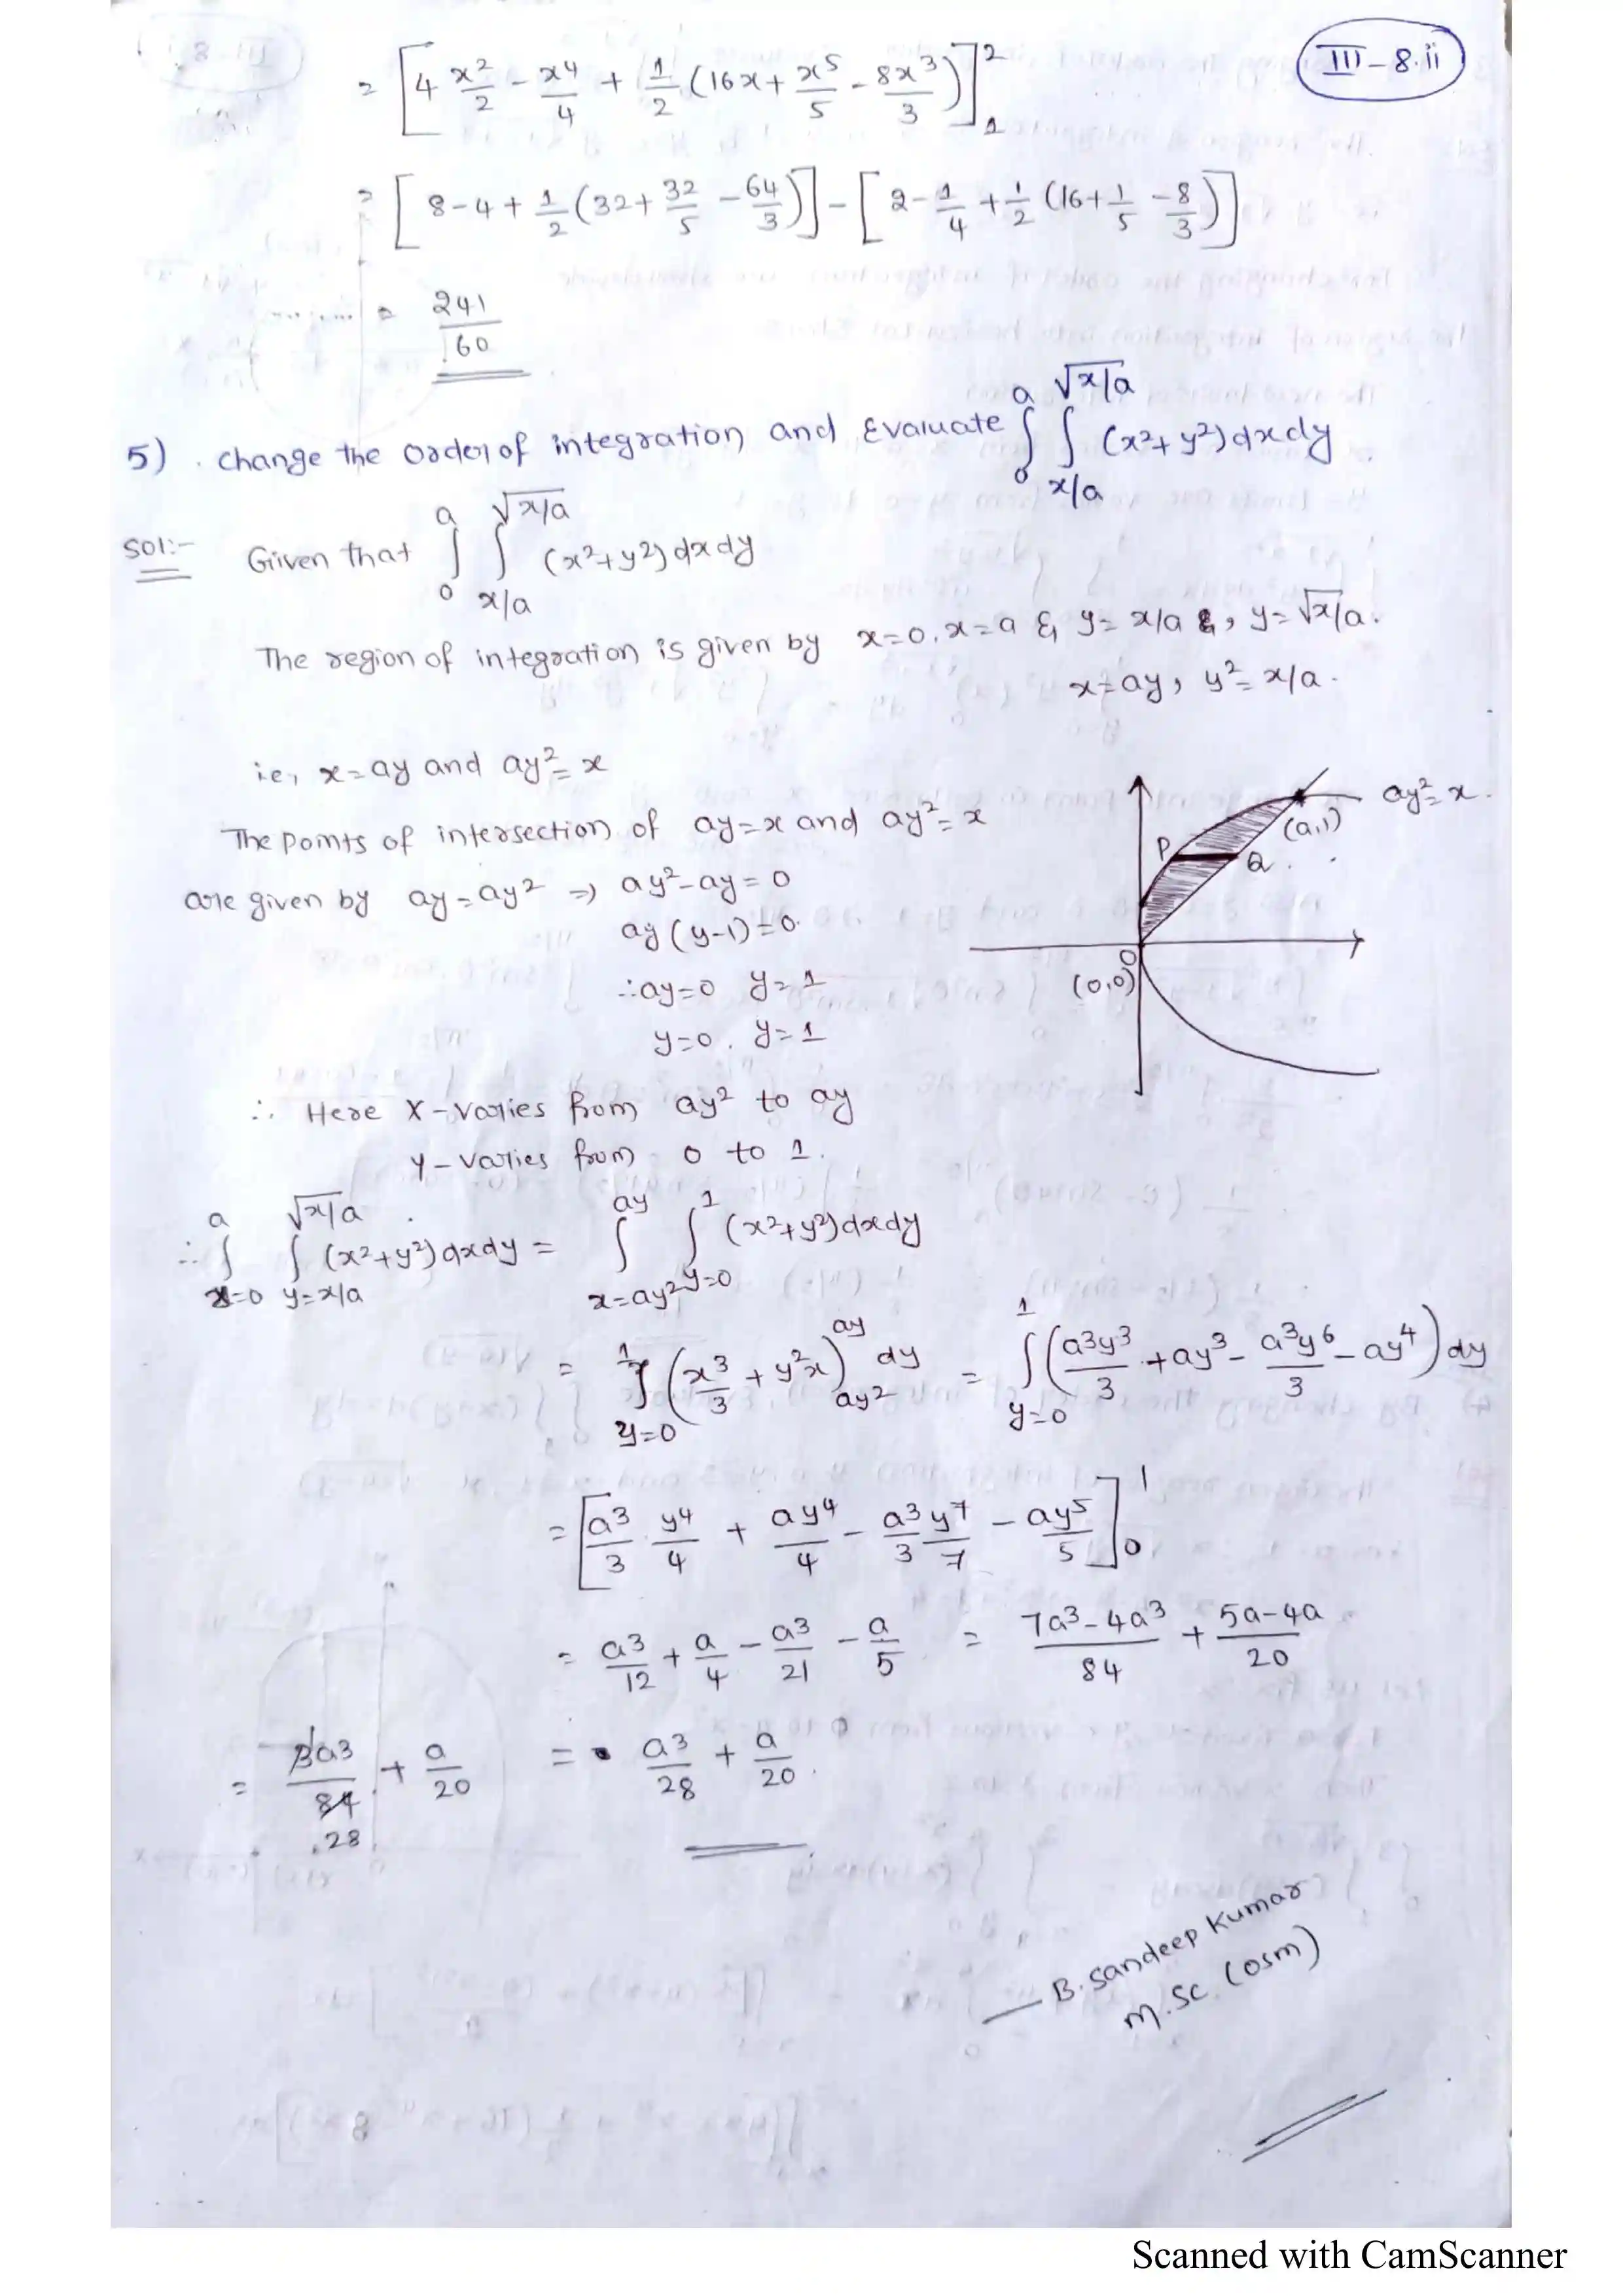 III-8.ii
= [4 x²/2 - x⁴/4 + 1/2 (16x + x⁵/5 - 8x³/3)]₁²
= [8-4+ 1/2 (32+ 32/5 - 64/3)] - [2 - 1/4 + 1/2 (16+ 1/5 - 8/3)]
= 241/60
5). change the order of integration and Evaluate ∫₀^a ∫_{x/a}^{√x/a} (x²+y²) dx dy.
Sol:- Given that ∫₀^a ∫_{x/a}^{√x/a} (x²+y²) dx dy
The region of integration is given by x=0, x=a & y= x/a &, y=√x/a.
x=ay, y²= x/a.
i.e, x=ay and ay²=x
The points of intersection of ay=x and ay²=x
are given by ay=ay² ⇒ ay²-ay=0
ay(y-1)=0.
∴ay=0 y=1
y=0. y=1
ay²=x.
(a,1)
P
Q.
O
(0,0)
∴ Here X-varies from ay² to ay
Y-varies from 0 to 1.
∴ ∫_{x=0}^a ∫_{y=x/a}^{√x/a} (x²+y²) dx dy = ∫_{x=ay²}^{ay} ∫_{y=0}^1 (x²+y²) dx dy
= ∫_{y=0}^1 (x³/3 + y²x)_{ay²}^{ay} dy = ∫_{y=0}^1 (a³y³/3 + ay³ - a³y⁶/3 - ay⁴) dy
= [a³/3 . y⁴/4 + ay⁴/4 - a³/3 y⁷/7 - ay⁵/5]₀¹
= a³/12 + a/4 - a³/21 - a/5 = 7a³-4a³/84 + 5a-4a/20
= 3a³/84 .28 + a/20 = a³/28 + a/20.
— B. Sandeep Kumar
M.Sc. (osm)
Scanned with CamScanner